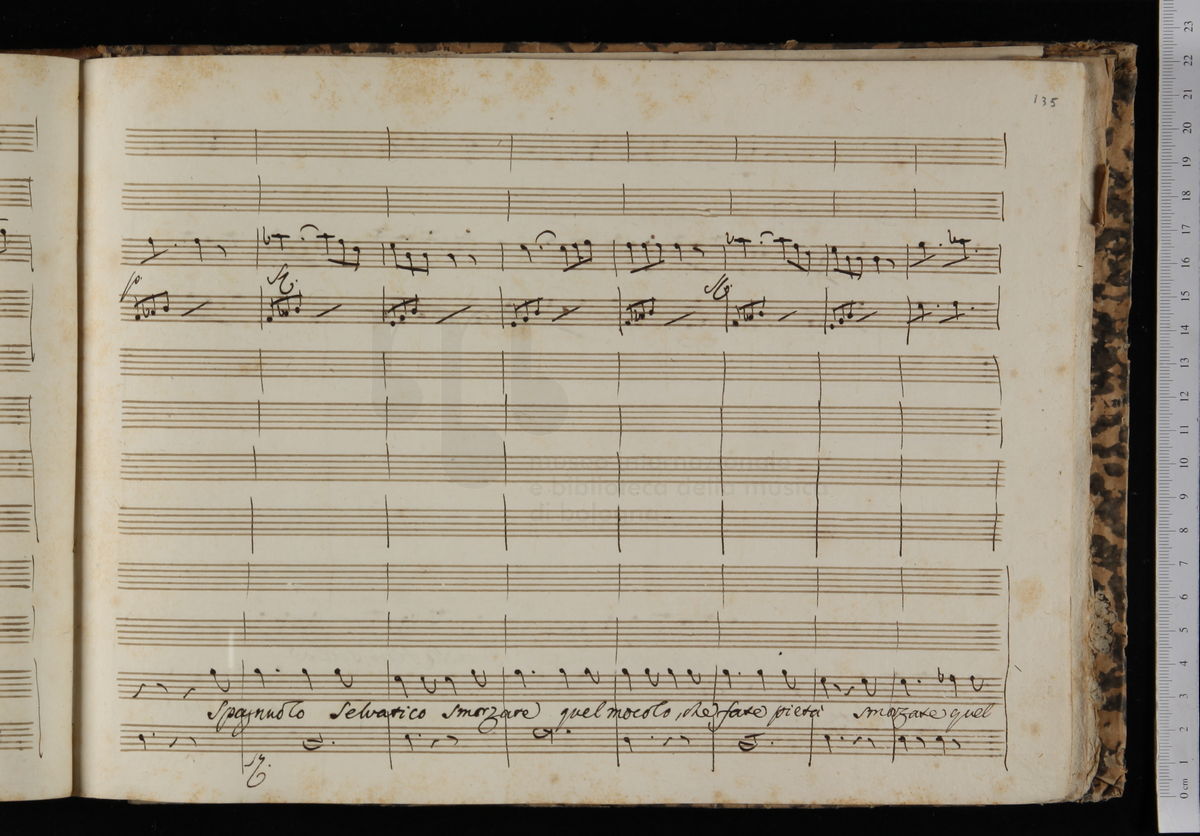 135
p.
sf.
sf.
Spagnuolo Selvatico smorzate quel mocolo, che fate pietà smorzate quel
sf.
museo internazionale
e biblioteca della musica
di bologna
23
22
21
20
19
18
17
16
15
14
13
12
11
10
9
8
7
6
5
4
3
2
1
0 cm